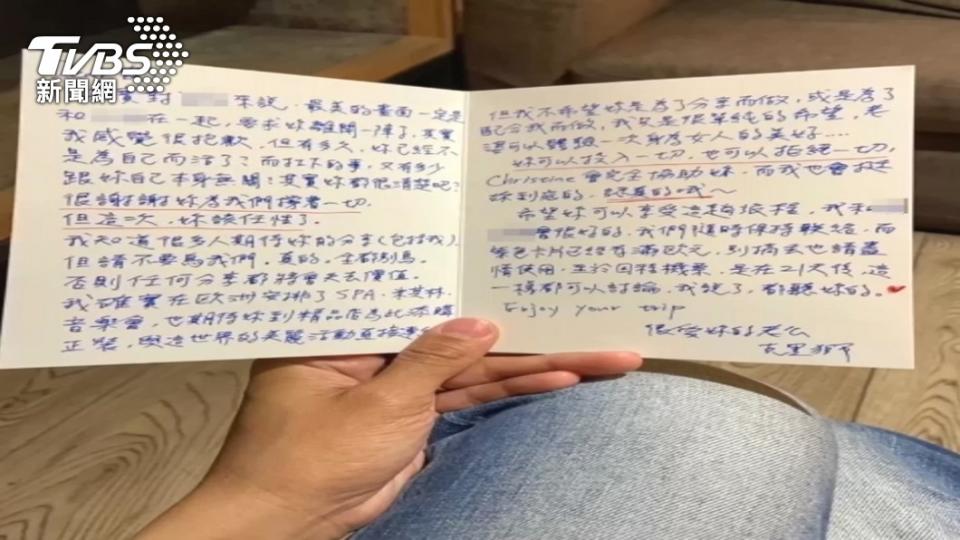 TVBS
新聞網
實對 來說,最美的畫面一定是
和 在一起,要求妳離開一陣子,其實
我感覺很抱歉,但有多久,妳已經不
是為自己而活了?而扛下的事,又有多少
跟妳自己本身無關?其實妳都很清楚吧?
很謝謝妳為我們撐著一切.
但這一次,妳該任性了.
我知道很多人期待妳的分享(包括我)
但請不要為我們,真的,全都別為.
否則任何分享都將會失去價值.
我確實在歐洲安排了SPA、米其林、
音樂會,也期待妳到精品店為此添購
正裝,與這世界的美麗活動直接
但我不希望妳是為了分享而做,或是為了
配合我而做,我只是很單純的希望,老
婆可以體驗一次身為女人的美好....
妳可以投入一切,也可以拒絕一切,
Christine會完全協助妳,而我也會挺
妳到底的,認真的哦~
希望妳可以享受這趟旅程,我和
會很好的,我們隨時保持聯絡,而
紫色卡片已經存滿歐元,別擔心也請盡
情使用,至於回程機票,是在21天後,這
一樣都可以討論,我說了,都聽妳的。
Enjoy your trip
很愛妳的老公
克里斯